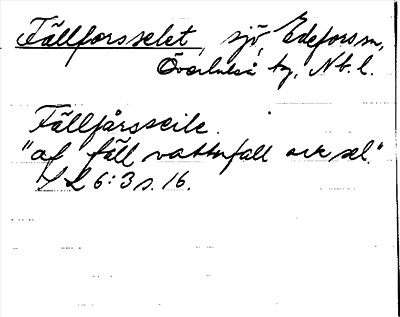 Fällforsselet, sjö, Edefors sn,
Överluleå tg, Nb. l.
Fällfårsseile.
"af fäll vattufall ock sel."
SL 6:3 s. 16.